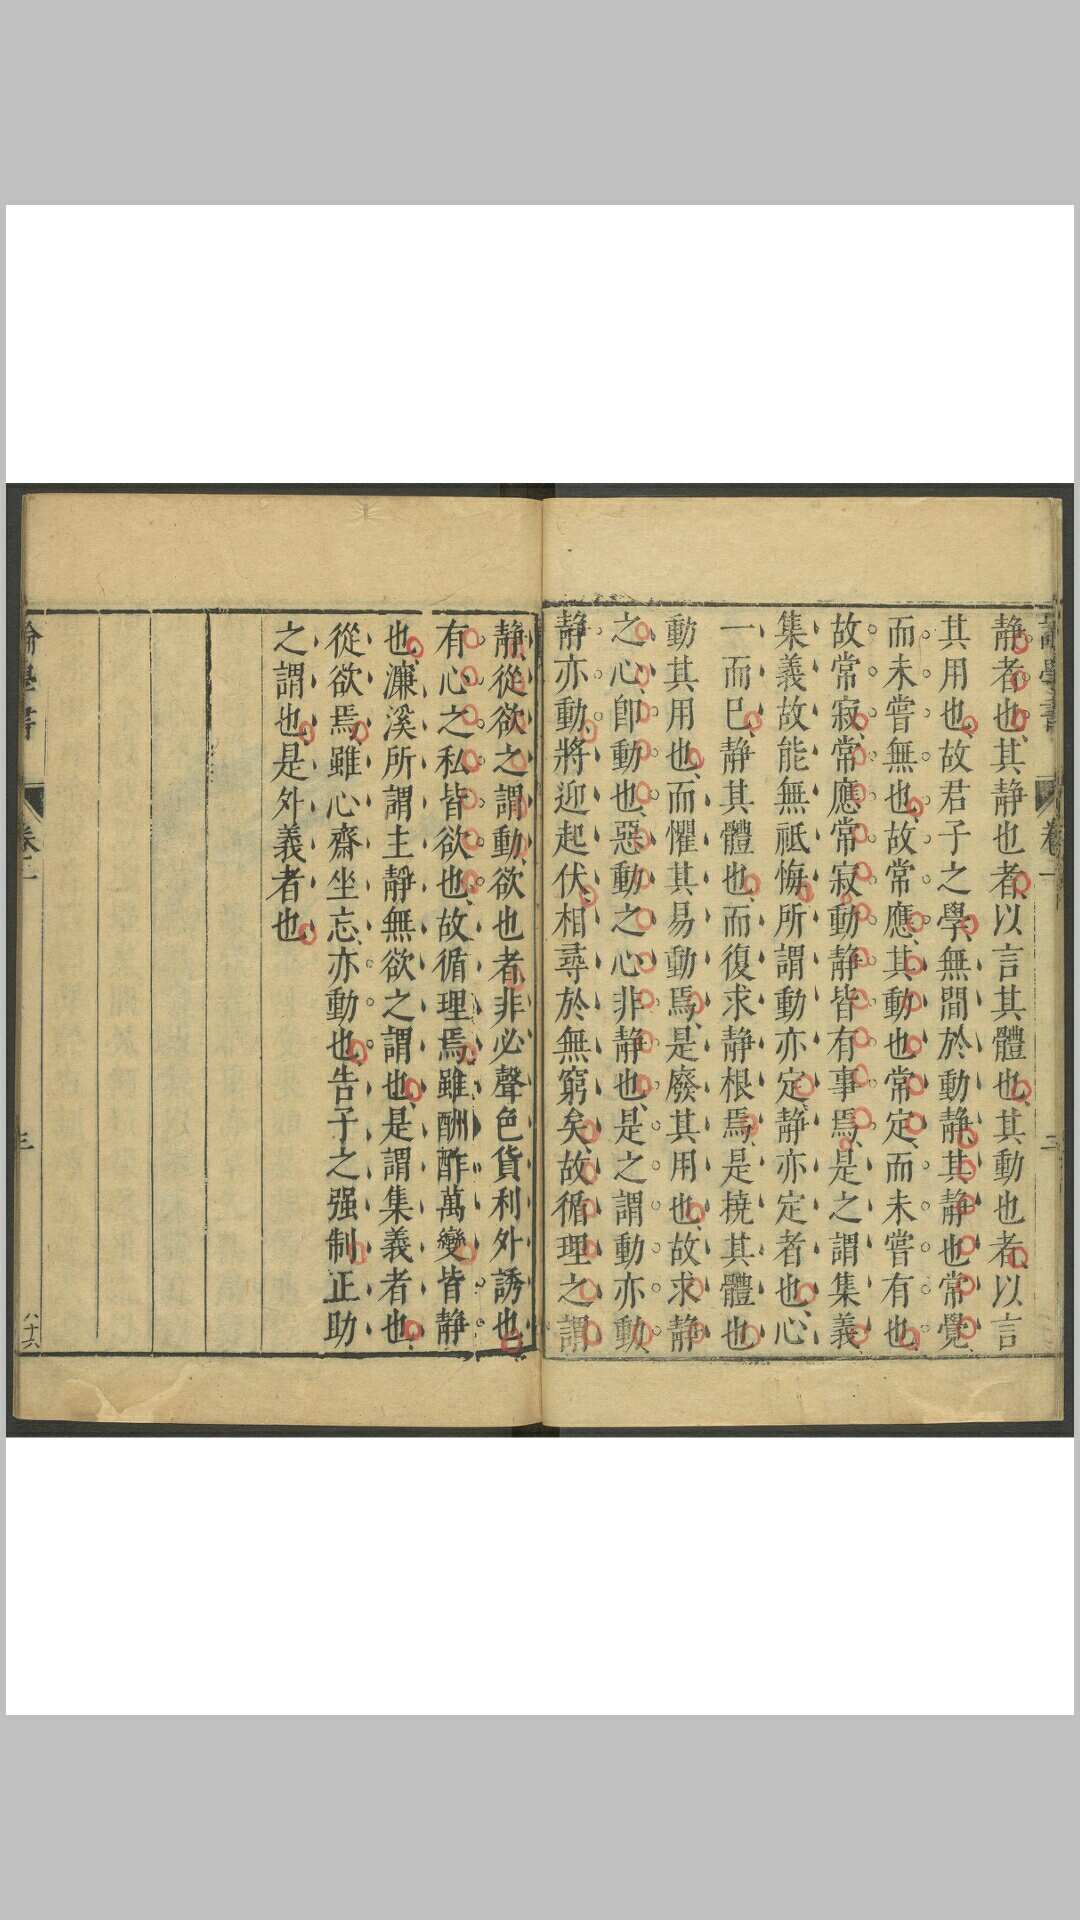 靜者也其靜也者以言其體也其動也者以言
其用也故君子之學無間於動靜其靜也常覺
而未嘗無也故常應其動也常定而未嘗有也
故常寂常應常寂動靜皆有事焉是之謂集義
集義故能無祗悔所謂動亦定靜亦定者也心
一而已靜其體也而復求靜根焉是撓其體也
動其用也而懼其易動焉是廢其用也故求靜
之心即動也惡動之心非靜也是之謂動亦動
靜亦動將迎起伏相尋於無窮矣故循理之謂
靜從欲之謂動欲也者非必聲色貨利外誘也
有心之私皆欲也故循理焉雖酬酢萬變皆靜
也濂溪所謂主靜無欲之謂也是謂集義者也
從欲焉雖心齋坐忘亦動也告子之强制正助
之謂也是外義者也
論學書
卷一
三
八十六